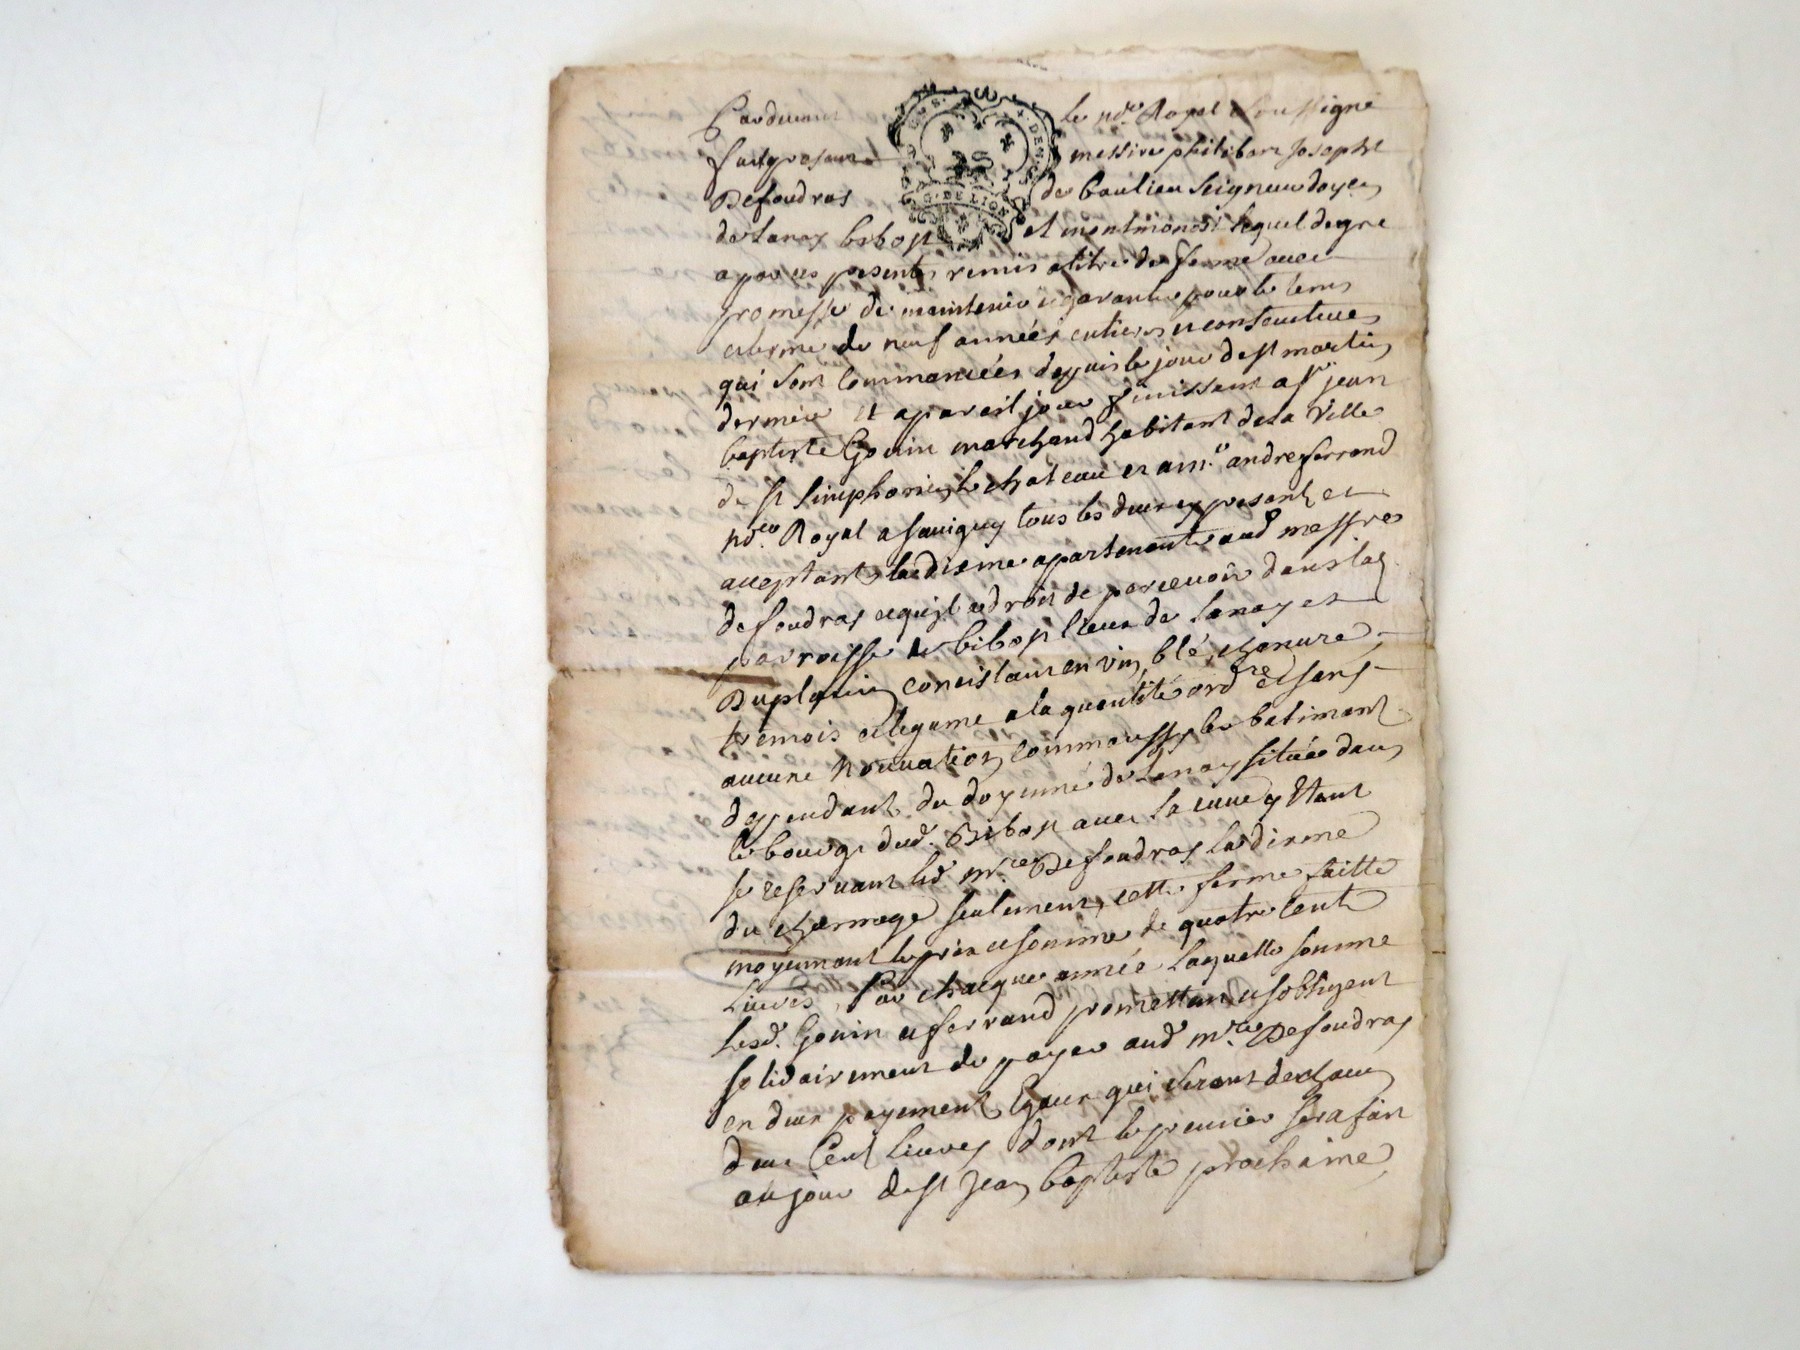 Pardevant le no.re Royal soussigné
fut present messire philibert Josepht
Defoudras de Coulieu Seigneur doyen
de Lanay bibost et montmenost lequel de gre
a par ces presentes remis a titre de ferme avec
promesse de maintenir et garantir pour le tems
et terme de neuf années entieres et consecutives
qui sont commancées depuis le jour de st martin
dernier et a pareil jour finissant a sr jean
baptiste Gonin marchand habitant de la Ville
de st simphorien le chateau et a m.e andre ferrand
no.re Royal a savigny tous les deux cy present et
acceptant la disme apartenante aud messire
defoudras et quil a droit de percevoir dans la
parroisse de bibost lieux de Lanay et
Duplanin concistant en vin, blé, chanvre,
tremois et legume a la quantité ord.re et sans
aucune novation comme aussy les batiment
dependant du doyenné de Lanay située dans
le bourg dud. Bibost avec la cuve y etant
se reservant led m.re Defoudras la disme
du charnage seulement, cette ferme faitte
moyennant le prix et somme de quatre cent
Livres, Par chacque année Laquelle somme
Lesd. Gonin et ferrand promettent et sobligent
solidairement de payer aud m.re Defoudras
en deux payement Egaux qui seront de chacun
deux Cent Livres dont le premier sera fait
au jour de st Jean baptiste prochaine
DE LION